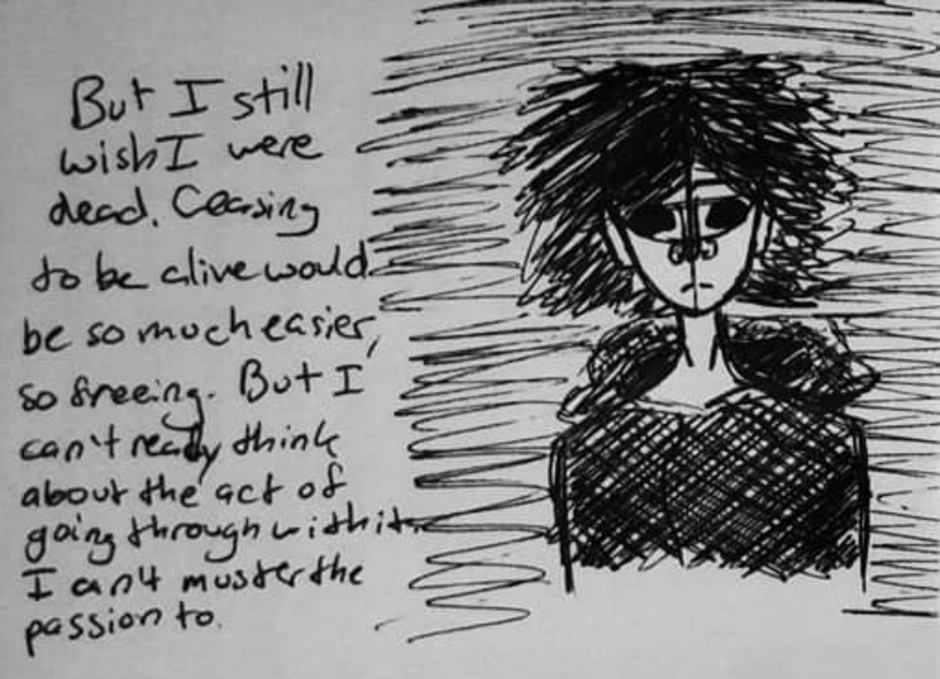 But I still
wish I were
dead. Ceasing
to be alive would
be so much easier,
so freeing. But I
can't really think
about the act of
going through with it.
I can't muster the
passion to.